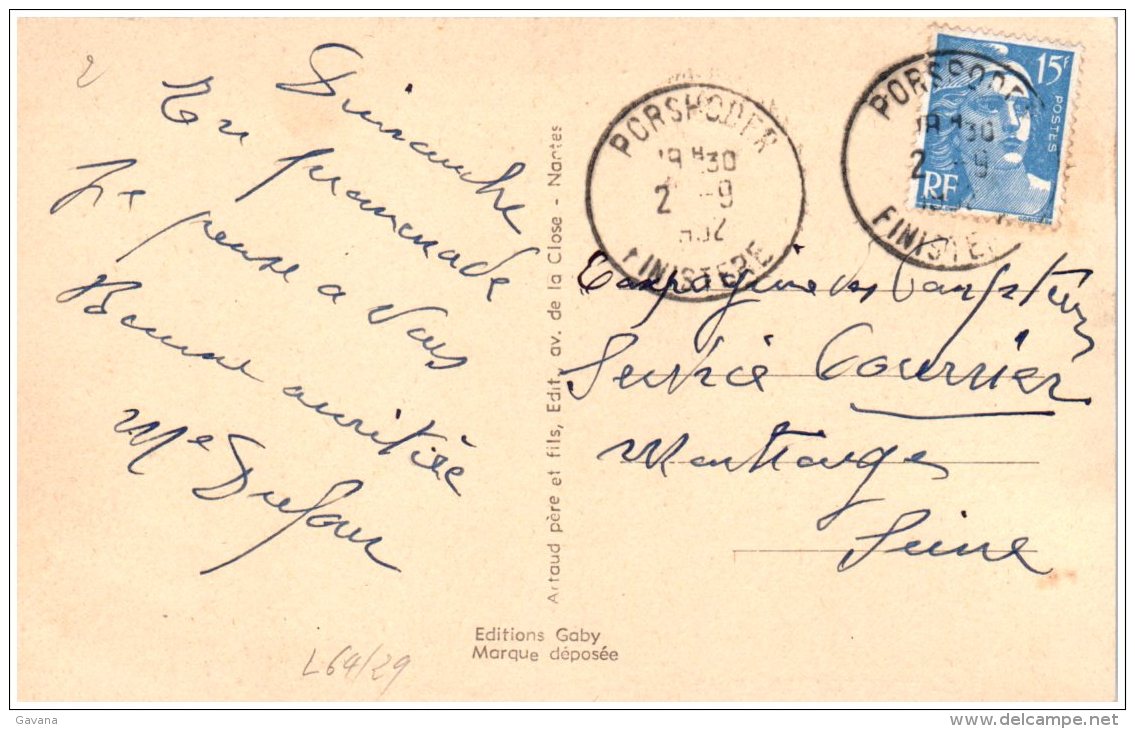 Dimanche
En promenade
Je pense à Vous
Bonne amitiée
Me Dufour
L64/29
Artaud père et fils, Edit., av. de la Close - Nantes
Editions Gaby
Marque déposée
PORSPODER
19 H 30
2 -9
1952
FINISTERE
PORSPODER
19 H 30
2 -9
FINISTERE
15F
POSTES
RF
Compagnie des Compteurs
Service Courrier
Montrouge
Seine
Gavana
www.delcampe.net